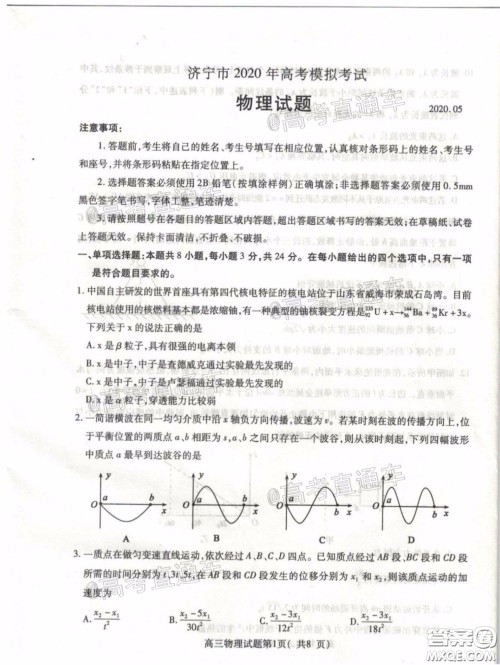 济宁市 2020 年高考模拟考试
物理试题
2020.05
注意事项：
1.答题前,考生将自己的姓名、考生号填写在相应位置,认真核对条形码上的姓名、考生号
和座号,并将条形码粘贴在指定位置上。
2.选择题答案必须使用2B铅笔(按填涂样例)正确填涂;非选择题答案必须使用0.5mm
黑色签字笔书写,字体工整,笔迹清楚。
3.请按照题号在各题目的答题区域内答题,超出答题区域书写的答案无效;在草稿纸、试卷
上答题无效。保持卡面清洁,不折叠、不破损。
一、单项选择题:本题共8小题,每小题3分,共24分。在每小题给出的四个选项中,只有一项
是符合题目要求的。
1.中国自主研发的世界首座具有第四代核电特征的核电站位于山东省威海市荣成石岛湾。目前
核电站使用的核燃料基本都是浓缩铀,有一种典型的铀核裂变方程是²³⁵₉₂U+x→¹⁴⁴₅₆Ba+⁸⁹₃₆Kr+3x.
下列关于x的说法正确的是
A.x是β粒子,具有很强的电离本领
B.x是中子,中子是查德威克通过实验最先发现的
C.x是中子,中子是卢瑟福通过实验最先发现的
D.x是α粒子,穿透能力比较弱
2.一简谐横波在同一均匀介质中沿x轴负方向传播,波速为v。若某时刻在波的传播方向上,位
于平衡位置的两质点a、b相距为s,a、b之间只存在一个波谷,则从该时刻起,下列四幅波形
中质点a最早到达波谷的是
y y y y
O a b x O a b x O a b x O a b x
A B C D
3.一质点在做匀变速直线运动,依次经过A、B、C、D四点。已知质点经过AB段、BC段和CD段
所需的时间分别为t、3t、5t,在AB段和CD段发生的位移分别为x₁和x₂,则该质点运动的加
速度为
A.(x₂-x₁)/t² B.(x₂-5x₁)/30t² C.(x₂-3x₁)/12t² D.(x₂-x₁)/18t²
高三物理试题第1页(共8页)
@高考直通车